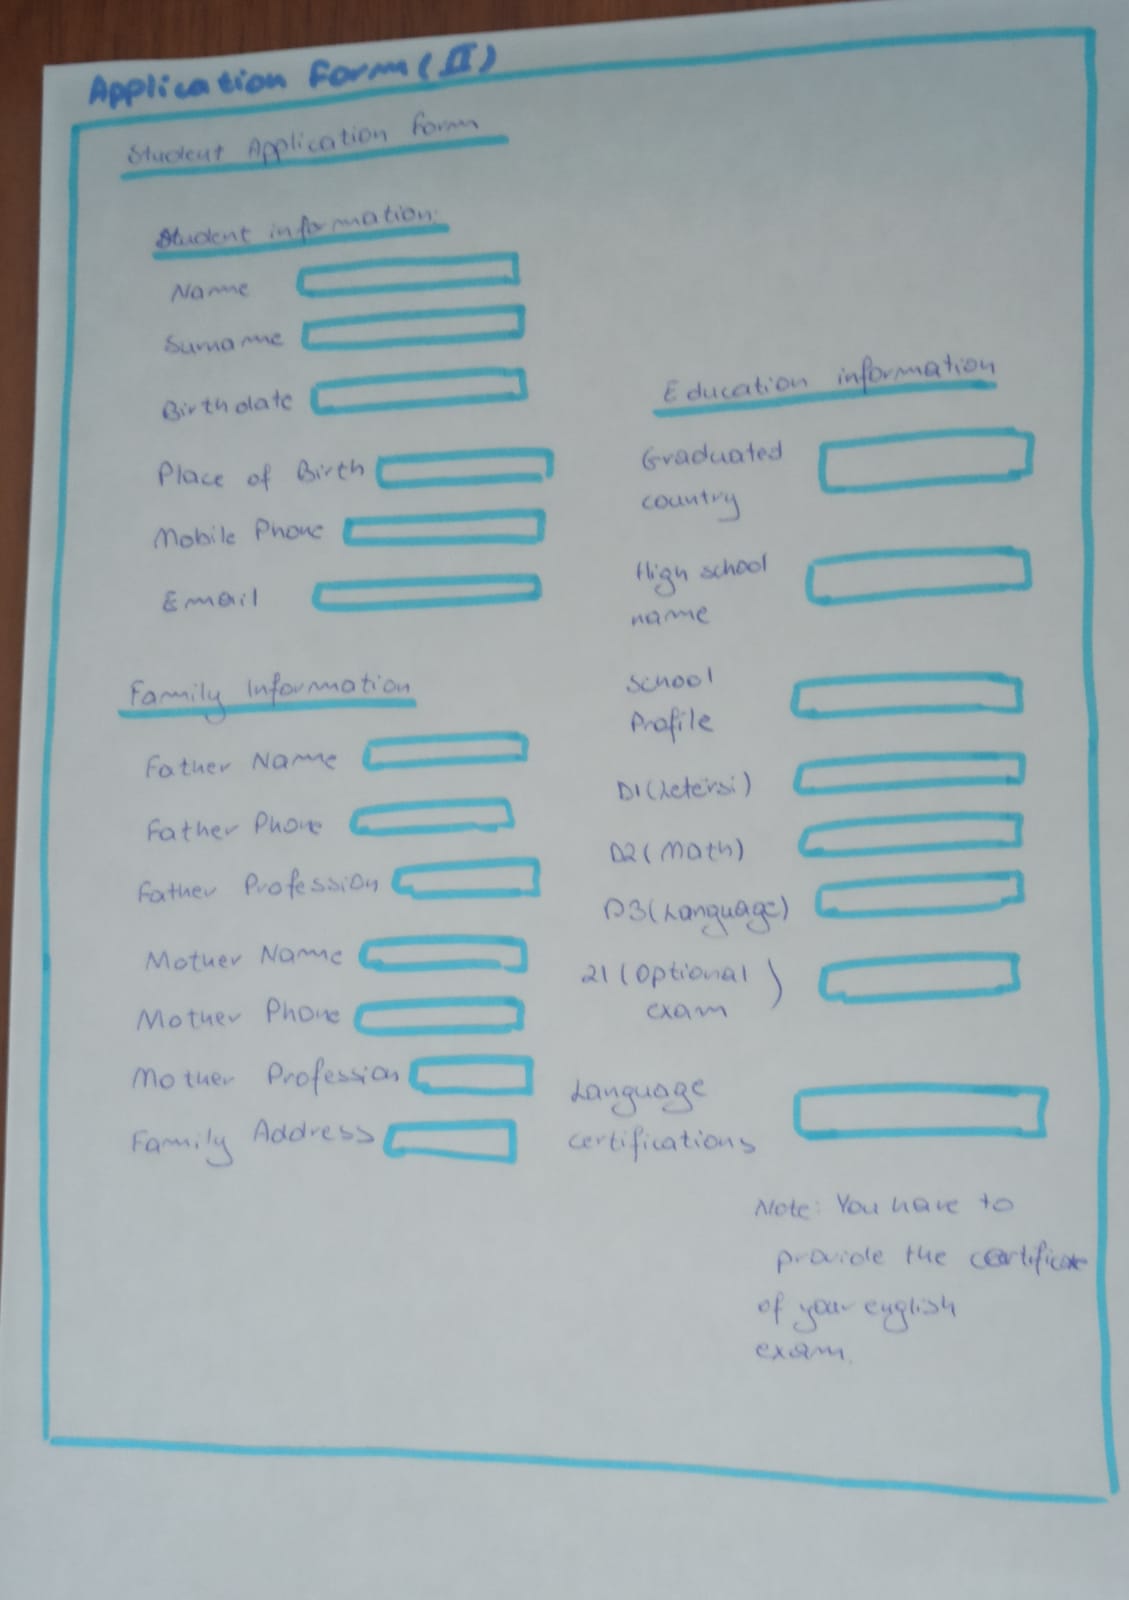 Application Form (II)
Student Application Form
Student information:
Name
Surname
Birthdate
Place of Birth
Mobile Phone
Email
Family Information
Father Name
Father Phone
Father Profession
Mother Name
Mother Phone
Mother Profession
Family Address
Education information
Graduated
country
High school
name
School
Profile
D1(Letërsi)
D2(Math)
D3(Language)
21(Optional
exam)
Language
certifications
Note: You have to
provide the certificate
of your english
exam.